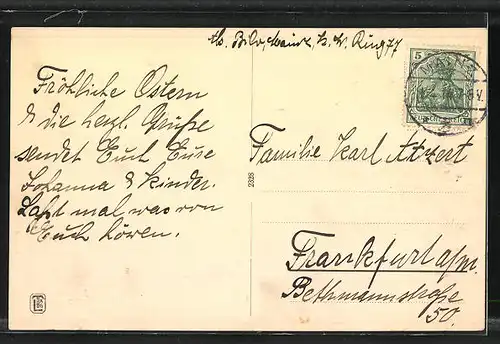 Mainz, K. W. Ring 77
Fröhliche Ostern
& die herzl. Grüße
sendet Euch Eure
Johanna & Kinder.
Laßt mal was von
Euch hören.
5
MAINZ
Deutsches Reich
Familie Karl Atzert
2328
Frankfurt a/m.
Bethmannstraße
50.